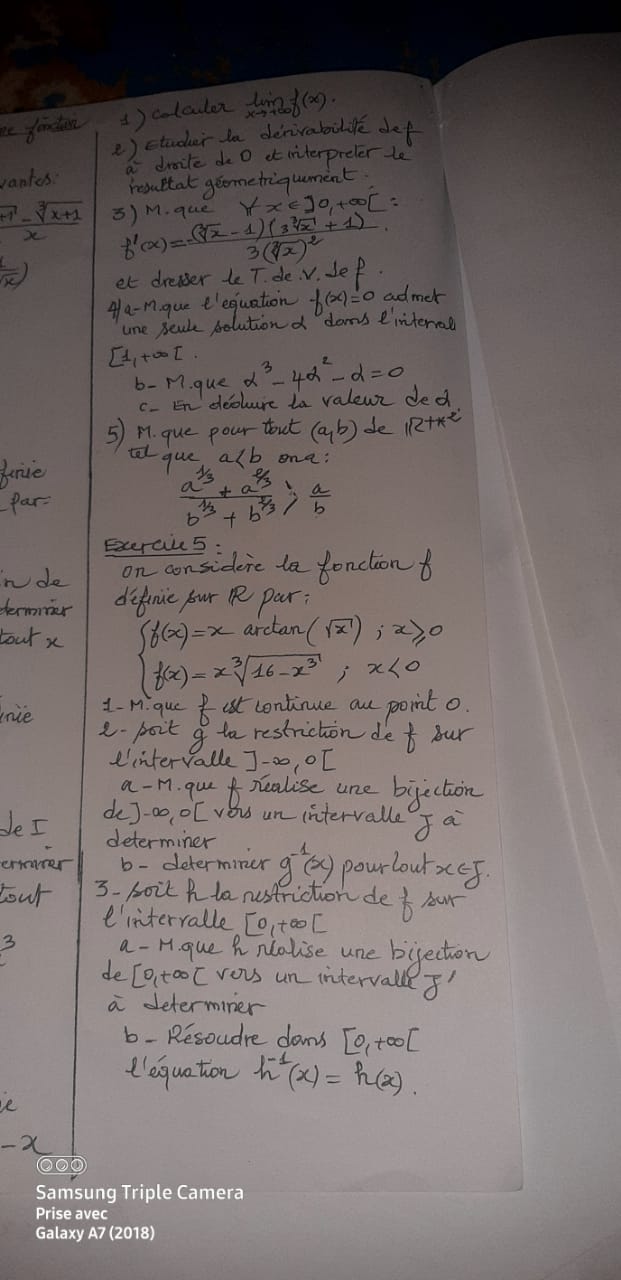 ne fonction
vantes:
+1 - ∛x+1
x
finie
Par:
n de
terminer
tout x
inie
de I
erminer
tout
3
-x
1) calculer lim f(x).
x→+∞
2) Etudier la dérivabilité de f
à droite de 0 et interpreter le
resultat géometriquement.
3) M.que ∀x∈]0,+∞[ :
f'(x)=-(∛x - 1)(3∛x + 1)
3(∛x)²
et dresser le T.de.V.de f.
4/a-M.que l'équation f(x)=0 admet
une seule solution α dans l'interval
[1,+∞[.
b- M.que α³-4α²-α=0
c- En déduire la valeur de α.
5) M.que pour tout (a,b) de ℝ+*²
tel que a<b ona:
a^1/3 + a^2/3 > a
b^1/3 + b^2/3 b
Exercice 5 :
on considère la fonction f
définie sur ℝ par:
{f(x)=x arctan(√x) ; x≥0
{f(x)=x∛16-x³ ; x<0
1-M.que f est continue au point 0.
2- soit g la restriction de f sur
l'intervalle ]-∞,0[
a-M.que f réalise une bijection
de]-∞,0[ vers un intervalle J à
determiner
b- determiner g⁻¹(x) pour tout x∈J.
3- soit h la restriction de f sur
l'intervalle [0,+∞[
a-M.que h réalise une bijection
de [0,+∞[ vers un intervalle J'
à determiner
b- Résoudre dans [0,+∞[
l'équation h⁻¹(x) = h(x).
Samsung Triple Camera
Prise avec
Galaxy A7 (2018)